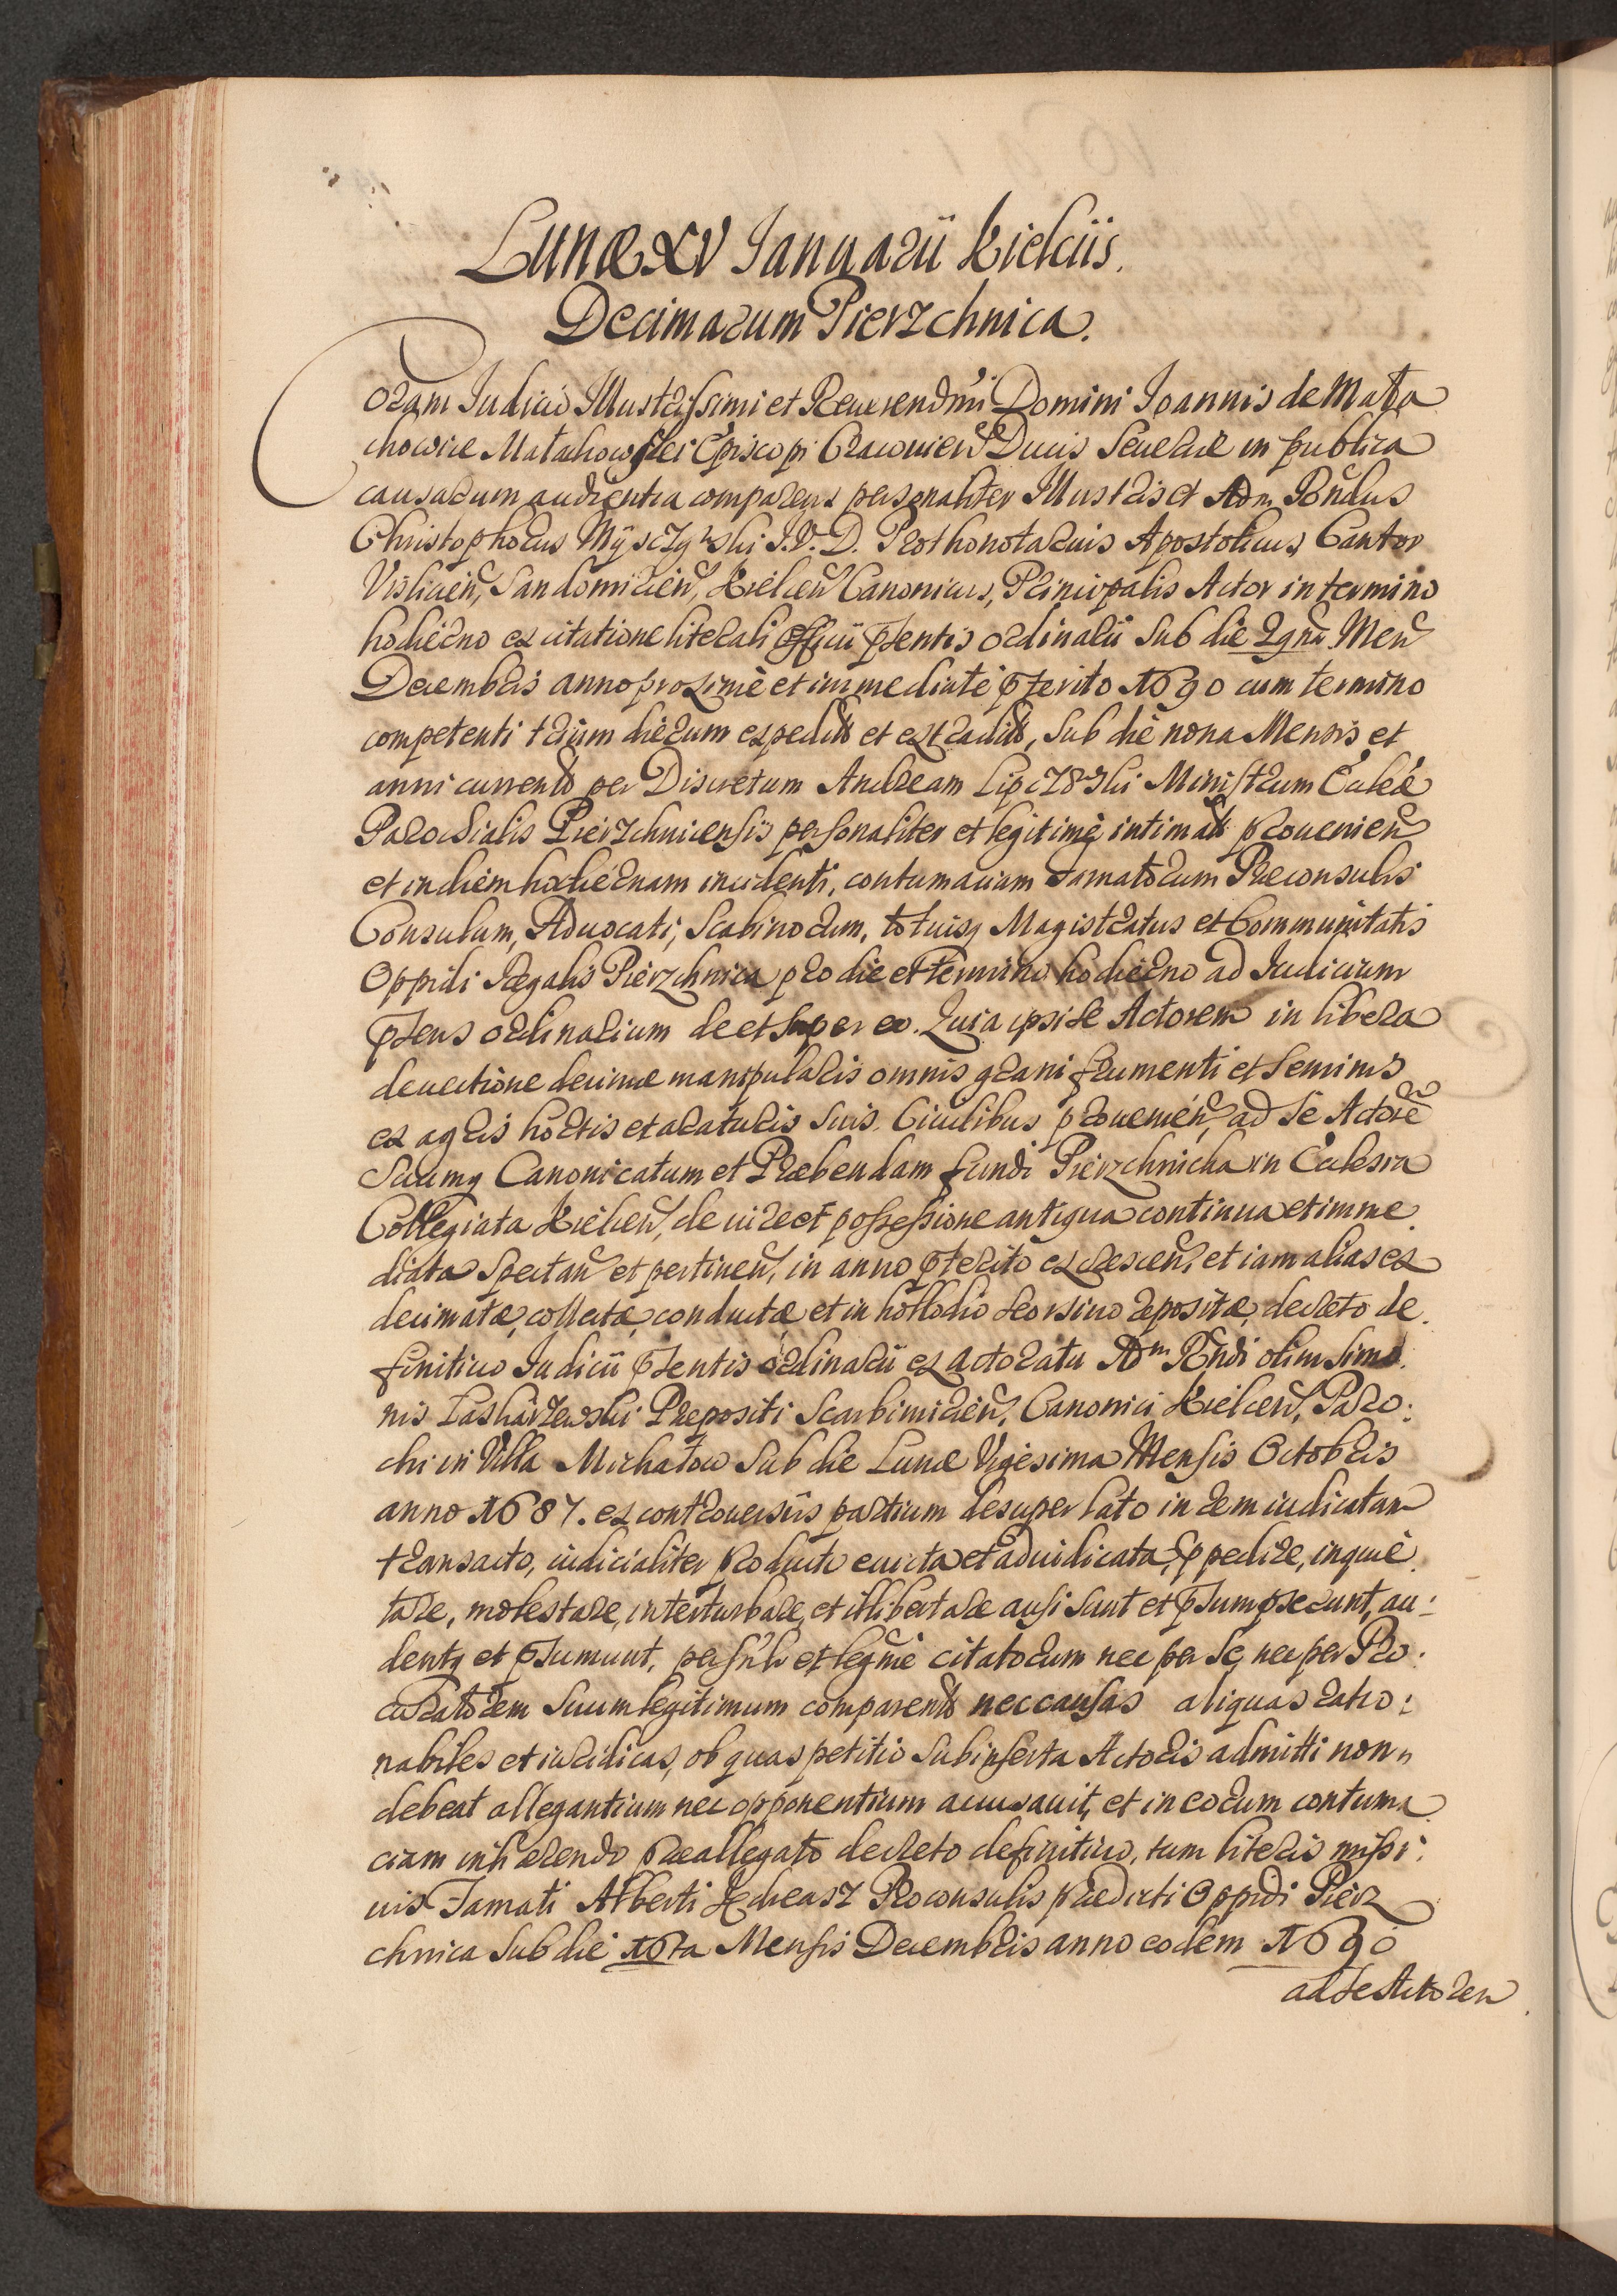 Lunæ XV Januarii Kielciis.
Decimarum Pierzchnica.
Coram Judicio Illustrissimi et Reuerendmi Domini Joannis de Mała
chowice Małachowski Episcopi Cracouien Ducis Seueriæ in publica
causarum audientia comparens personaliter Illustris et Adm Rndus
Christophorus Myszczynski J.V.D. Prothonotarius Apostolicus Cantor
Vislicien, Sandomirien, Kielcen Canonicus, Principalis Actor in termino
hodierno ex citatione literali officii pntis ordinarii sub die 29na Men
Decembris anno proximè et immediatè pterito 1690 cum termino
competenti trium dierum expedits et extradits, sub die nona Mensis et
anni currents per Discretum Andream Ministrum Ecclæ
Parochialis Pierzchnicensis personaliter et legitimè intimats prouenien
et in diem hodiernam incidenti, contumaciam Famatorum Præconsulis
Consulum, Aduocati, Scabinorum, totiusq Magistratus et Communitatis
Oppidi Regalis Pierzchnica pro die et termino hodierno ad Judicium
pns ordinarium de et super eo. Quia ipsi se Actorem in libera
deuectione decimæ manipularis omnis grani frumenti et seminis
ex agris hortis et araturis suis Ciuilibus prouenien, ad se Actorē
suumq Canonicatum et Præbendam fundi Pierzchnicha in Ecclesia
Collegiata Kielcen, de iure et possessione antiqua continua et imme
diata spectan et pertinen, in anno pterito excrescen, et iam alias ex
decimatæ, collectæ, conductæ et in horrodio seorsiuo repositæ, decreto de
finitiuo Judicii pntis ordinarii ex actoratu Adm Rndi olim Simo
nis Præpositi Scarbimirien, Canonici Kielcen, Paro:
chi in Villa Michałow sub die Lunæ Vigesima Mensis Octobris
anno 1687. ex controuersiis partium desuper lato in rem iudicatam
transacto, iudicialiter producto euicta et adiudicata, ppedire, inquie
tare, molestare, interturbare, et illibertare ausi sunt et psumpserunt, au:
dentq et psumunt, psnlr et legmè citatorum nec per se, nec per Pro:
curatorem suum legitimum comparents nec causas aliquas ratio:
nabiles et iuridicas, ob quas petitio subinserta Actoris admitti non
debeat allegantium nec opponentium accusauit, et in eorum contuma
ciam inhærendo præallegato decreto definitiuo, tum literis missi:
uis Famati Alberti Proconsulis prædicti Oppidi Pierz
chnica sub die 16ta Mensis Decembris anno eodem 1690
ad se Actorem